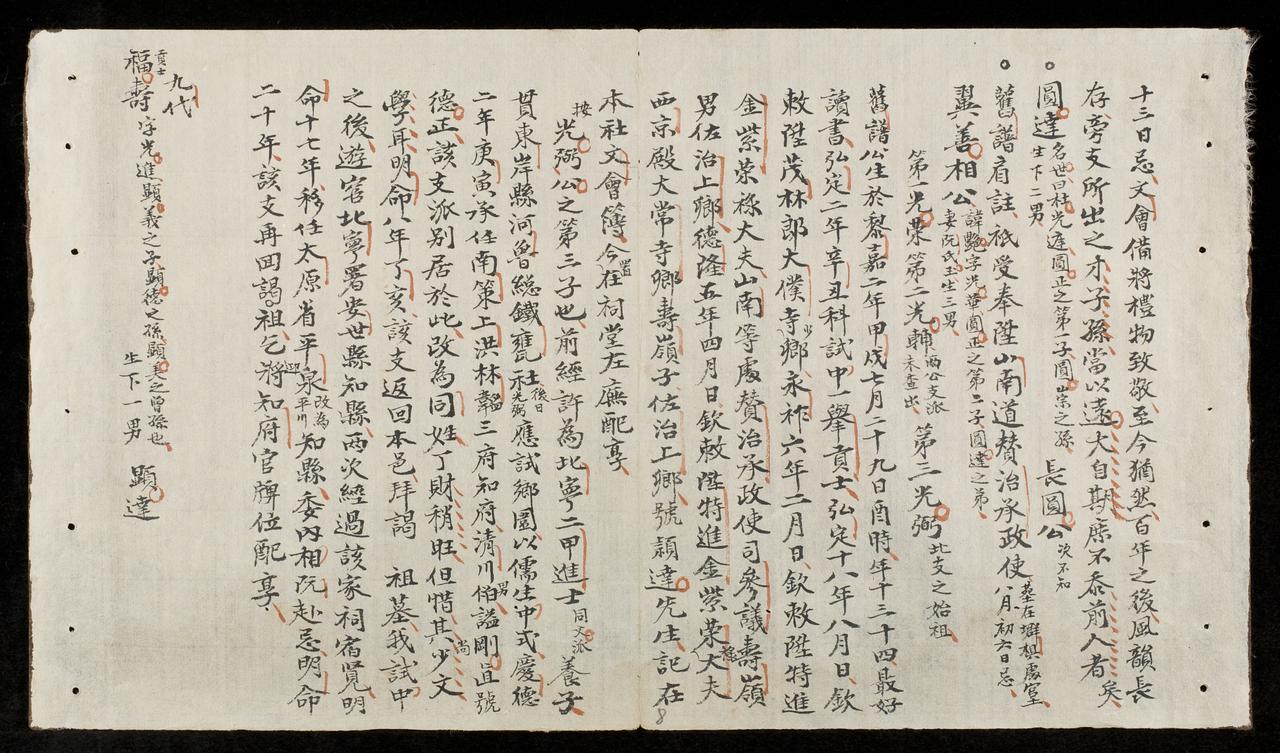 十三日忌文會備將禮物致敬至今猶然百年之後風韻長
存旁支所出之才子孫當以遠大自期庶不忝前人者矣
圓達名世曰杜光遲圓正之第一子圓崇之孫生下二男 長圓公次不知
舊譜肩註祇受奉陞山南道賛治承政使八月初六日忌
翼善相公諱艷字光華圓正之第二子圓達之弟妻阮氏玉生三男
第一光榮第二光輔兩公支派未查出第三光弼此支之始祖
舊譜公生於黎嘉二年甲戌七月二十九日酉時年十三十四最好
讀書弘定二年辛丑科試中一舉貢士弘定十八年八月日欽
敕陞茂林郎大僕寺少卿永祚六年二月日欽敕陞特進
金紫榮祿大夫山南等處賛治承政使司參議壽嶺
男佐治上卿德隆五年四月日欽敕陞特進金紫榮祿大夫
西京殿大常寺卿壽嶺子佐治上卿號穎達先生記在
本社文會簿今置在祠堂左廡配享
按光弼公之第三子也前經許為北寧二甲進士同文派養子
貫東岸縣河魯總鐵甕社後日光弼應試鄉圍以儒生中式慶德
二年庚寅承任南策上洪林韜三府知府清川伯謚剛直號
德正該支派別居於此改為同姓丁財稍旺但惜其少文
學耳明命八年丁亥該支返回本邑拜謁 祖墓我試中
之後遊宦北寧署安世縣知縣兩次經過該家祠宿覽明
命十七年移任太原省平泉改為平川知縣委內相阮赴忌明命
二十年該支再回謁祖乞將知府官牌位配享
九代
貢士福壽字光進顯義之子顯德之孫顯美之曾孫也生下一男 顯達
8